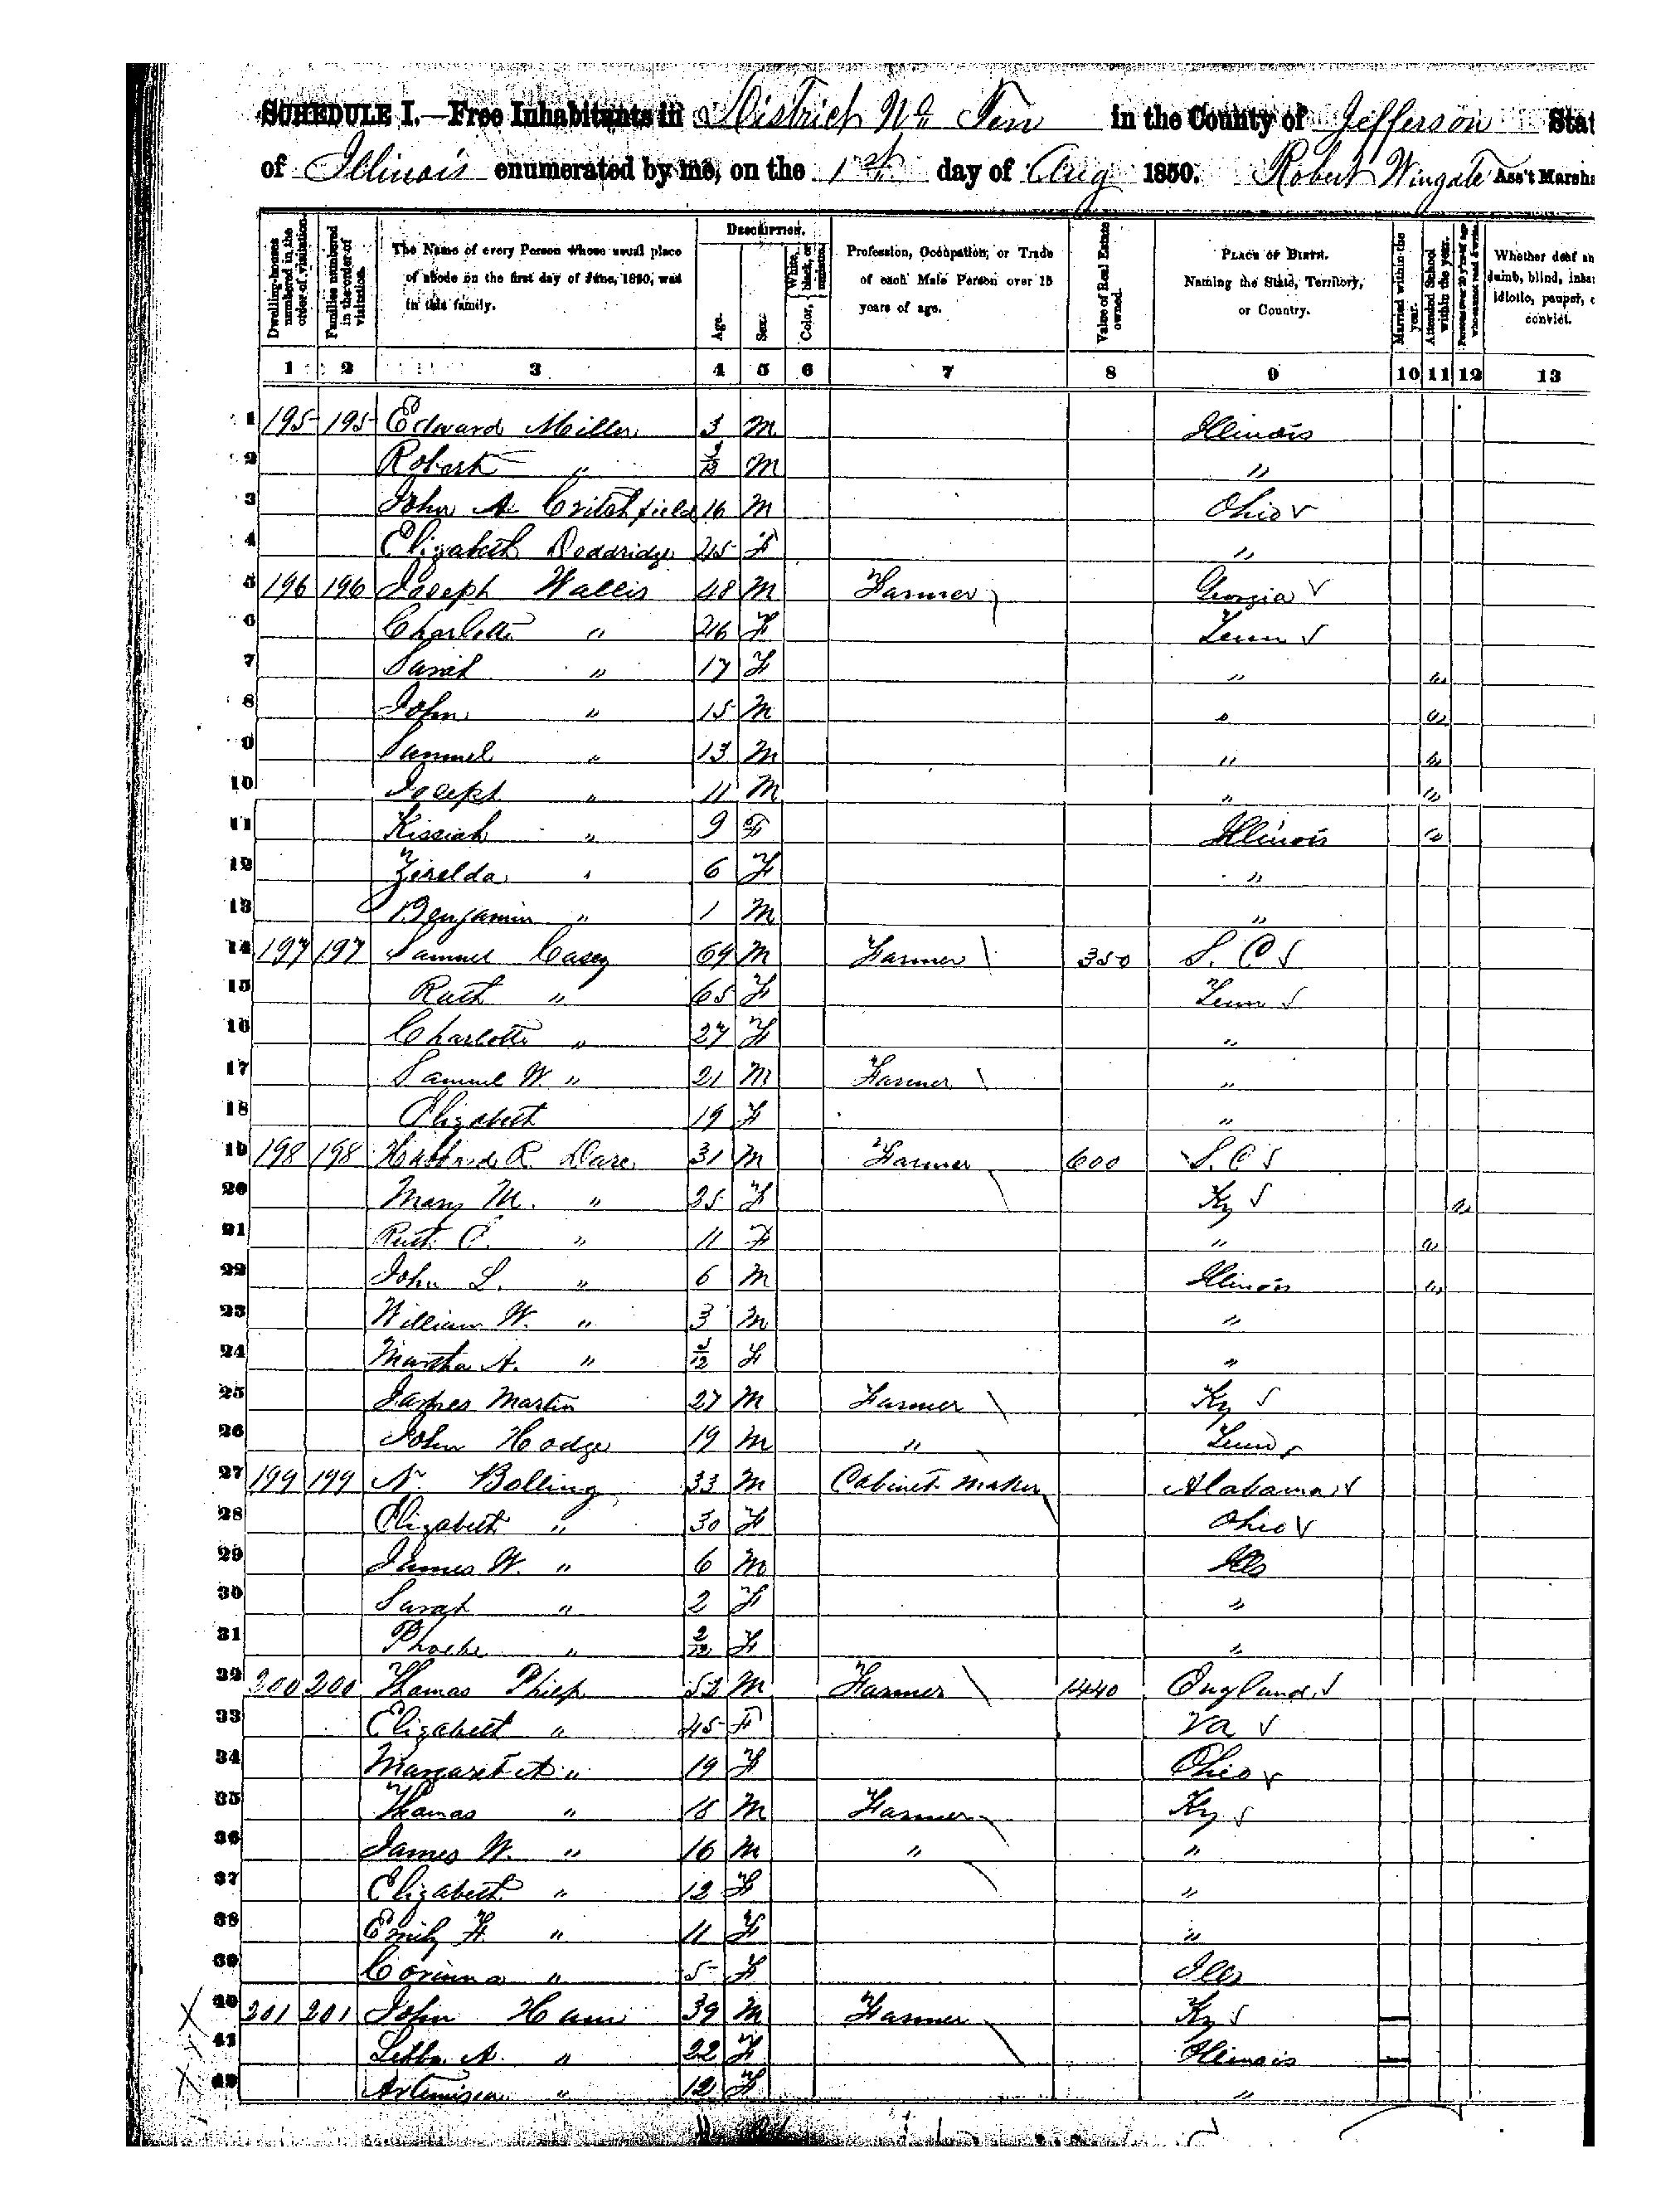 SCHEDULE I.—Free Inhabitants in District No Ten in the County of Jefferson Stat
of Illinois enumerated by me, on the 1st day of Aug 1850. Robert Wingate Ass't Marsha
Dwelling-houses numbered in the order of visitation.
Families numbered in the order of visitation.
The Name of every Person whose usual place of abode on the first day of June, 1850, was in this family.
DESCRIPTION.
Age.
Sex.
White, black, or mulatto.
Color,
Profession, Occupation, or Trade of each Male Person over 15 years of age.
Value of Real Estate owned.
PLACE OF BIRTH. Naming the State, Territory, or Country.
Married within the year.
Attended School within the year.
Persons over 20 y'rs of age who cannot read & write.
Whether deaf an dumb, blind, insan idiotic, pauper, o convict.
1 2 3 4 5 6 7 8 9 10 11 12 13
1 195 195 Edward Miller 3 M Illinois
2 Robert " M "
3 John A Critchfield 16 M Ohio
4 Elizabeth Doddridge 45 F "
5 196 196 Joseph Wallis 48 M Farmer Georgia
6 Charlotte " 46 F Tenn
7 Sarah " 17 F " "
8 John " 15 M " "
9 Samuel " 13 M " "
10 Joseph " 11 M " "
11 Kissiah " 9 F Illinois "
12 Zirelda " 6 F "
13 Benjamin " 1 M "
14 197 197 Samuel Casey 69 M Farmer 350 S. C.
15 Ruth " 65 F Tenn
16 Charlotte " 27 F "
17 Samuel W. " 21 M Farmer "
18 Elizabeth 19 F "
19 198 198 R. Dare 31 M Farmer 600 S. C
20 Mary M. " 25 F Ky "
21 Ruth C. " 11 F " "
22 John L. " 6 M Illinois "
23 William W. " 3 M "
24 Martha A. " F "
25 James Martin 27 M Farmer Ky
26 John Hodge 19 M " Tenn
27 199 199 N Bolling 33 M Cabinet Maker Alabama
28 Elizabeth " 30 F Ohio
29 James W. " 6 M Ills
30 Sarah " 2 F "
31 Phoebe " 2/12 F "
32 200 200 Thomas Philp 52 M Farmer 1440 England
33 Elizabeth " 45 F Va
34 Margaret A " 19 F Ohio
35 Thomas " 18 M Farmer Ky
36 James W. " 16 M " "
37 Elizabeth " 12 F "
38 Emily F. " 11 F "
39 Corinna " 5 F Ills
40 201 201 John Ham 39 M Farmer Ky
41 A. " 22 F Illinois
42 Artemisea " 12 F "